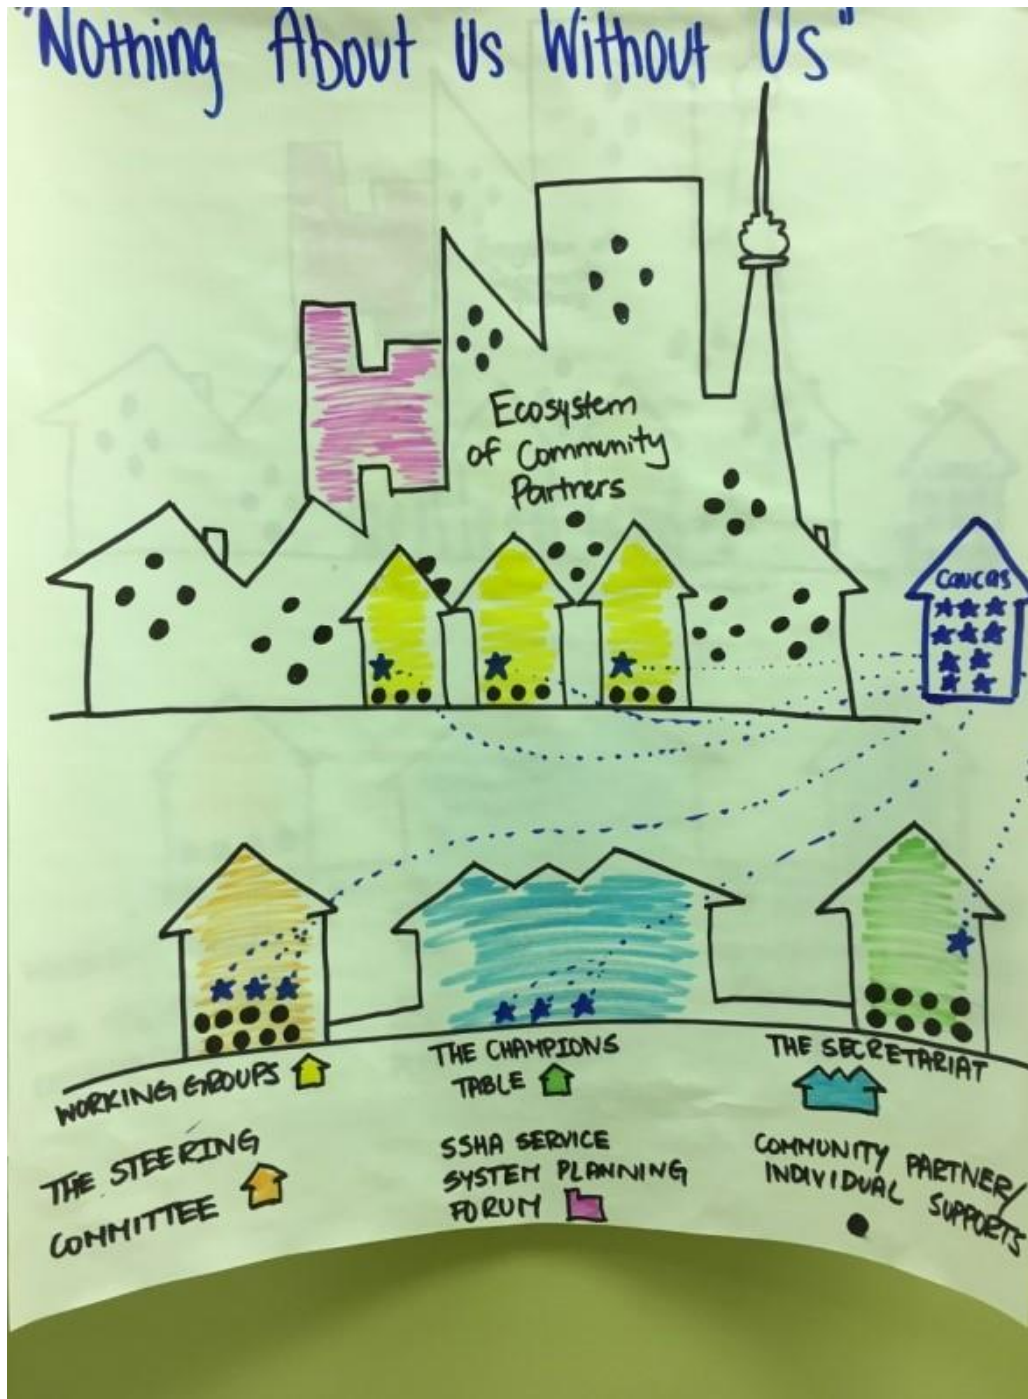 "Nothing About Us Without Us"
Ecosystem
of Community
Partners
CAUCAS
WORKING GROUPS
THE CHAMPIONS
TABLE
THE SECRETARIAT
THE STEERING
COMMITTEE
SSHA SERVICE
SYSTEM PLANNING
FORUM
COMMUNITY PARTNER/
INDIVIDUAL SUPPORTS